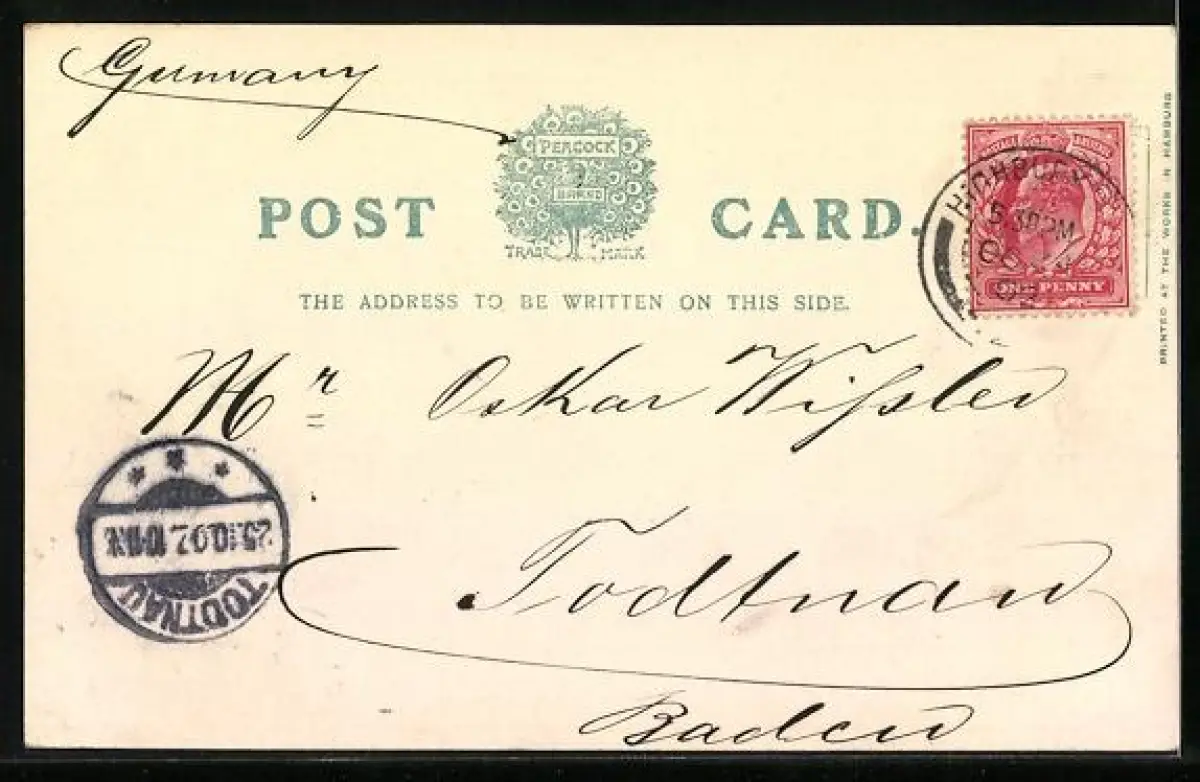 Germany
PEACOCK
BRAND
TRADE MARK
POST CARD.
THE ADDRESS TO BE WRITTEN ON THIS SIDE.
HIGHBURY
5.30PM
OC
02
ONE PENNY
PRINTED AT THE WORKS IN HAMBURG
Mr Oskar Wißler
TODTNAU
25.10.02.
Todtnau
Baden